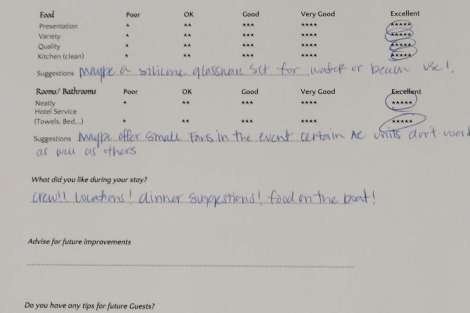 Food Poor OK Good Very Good Excellent
Presentation * ** *** **** *****
Variety * ** *** **** *****
Quality * ** *** **** *****
Kitchen (clean) * ** *** **** *****
Suggestions Maybe a silicone glassware set for water or beach use!
Rooms/Bathrooms Poor OK Good Very Good Excellent
Neatly * ** *** **** *****
Hotel Service
(Towels, Bed,..) * ** *** **** *****
Suggestions Maybe offer small fans in the event certain AC units don't work
as well as others
What did you like during your stay?
Crew!! Locations! dinner suggestions! food on the boat!
Advise for future improvements
Do you have any tips for future Guests?